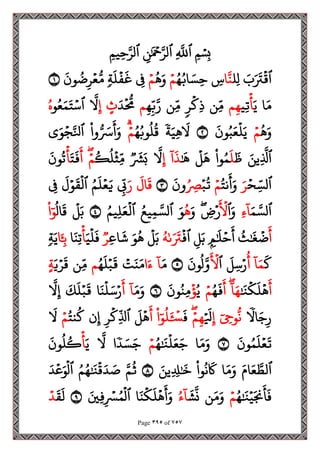 بِسْمِ اِ۬للَّهِ اِ۬لرَّحْمَٰنِ اِ۬لرَّحِيمِ
اَ۪قْتَرَبَ لِلنَّاسِ حِسَابُهُمْ وَهُمْ فِى غَفْلَةٍ مُّعْرِضُونَ ١
مَا يَأْتِيهِم مِّن ذِكْرٍ مِّن رَّبِّهِم مُّحْدَثٍ إِلَّا اَ۪سْتَمَعُوهُ
وَهُمْ يَلْعَبُونَ ٢ لَاهِيَةً قُلُوبُهُمْ وَأَسَرُّواْ اُ۬لنَّجْوَى
اَ۬لذِينَ ظَلَمُواْ هَلْ هَٰذَا إِلَّا بَشَرٌ مِّثْلُكُمْ أَفَتَأْتُونَ
اَ۬لسِّحْرَ وَأَنتُمْ تُبْصِرُونَ ٣ قَالَ رَبِّى يَعْلَمُ اُ۬لْقَوْلَ فِى
اِ۬لسَّمَآءِ وَالْأَرْضِ وَهُوَ اَ۬لسَّمِيعُ اُ۬لْعَلِيمُ ٤ بَلْ قَالُواْ
أَضْغَٰثُ أَحْلَٰمٍ بَلِ اِ۪فْتَر۪ىٰهُ بَلْ هُوَ شَاعِرٌ فَلْيَأْتِنَا بِـَٔايَةٍ
كَمَا أُرْسِلَ اَ۬لْأَوَّلُونَ ٥ مَا ءَامَنَتْ قَبْلَهُم مِّن قَرْيَةٍ
أَهْلَكْنَٰهَا أَفَهُمْ يُؤْمِنُونَ ٦ وَمَا أَرْسَلْنَا قَبْلَكَ إِلَّا
رِجَالًا نُّوحِى إِلَيْهِمْ فَسْـَٔلُواْ أَهْلَ اَ۬لذِّكْرِ إِن كُنتُمْ لَا
تَعْلَمُونَ ٧ وَمَا جَعَلْنَٰهُمْ جَسَدًا لَّا يَأْكُلُونَ
اَ۬لطَّعَامَ وَمَا كَانُواْ خَٰلِدِينَ ٨ ثُمَّ صَدَقْنَٰهُمُ اُ۬لْوَعْدَ
فَأَنجَيْنَٰهُمْ وَمَن نَّشَآءُ وَأَهْلَكْنَا اَ۬لْمُسْرِفِينَ ٩ لَقَدْ
Page ٣٩٥ of ٧٥٧